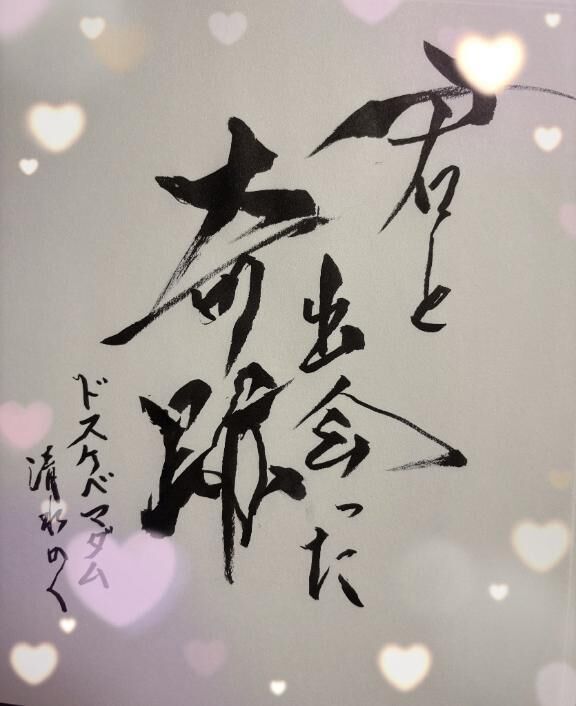 君と
出会った
奇跡
ドスケベマダム
清水めく